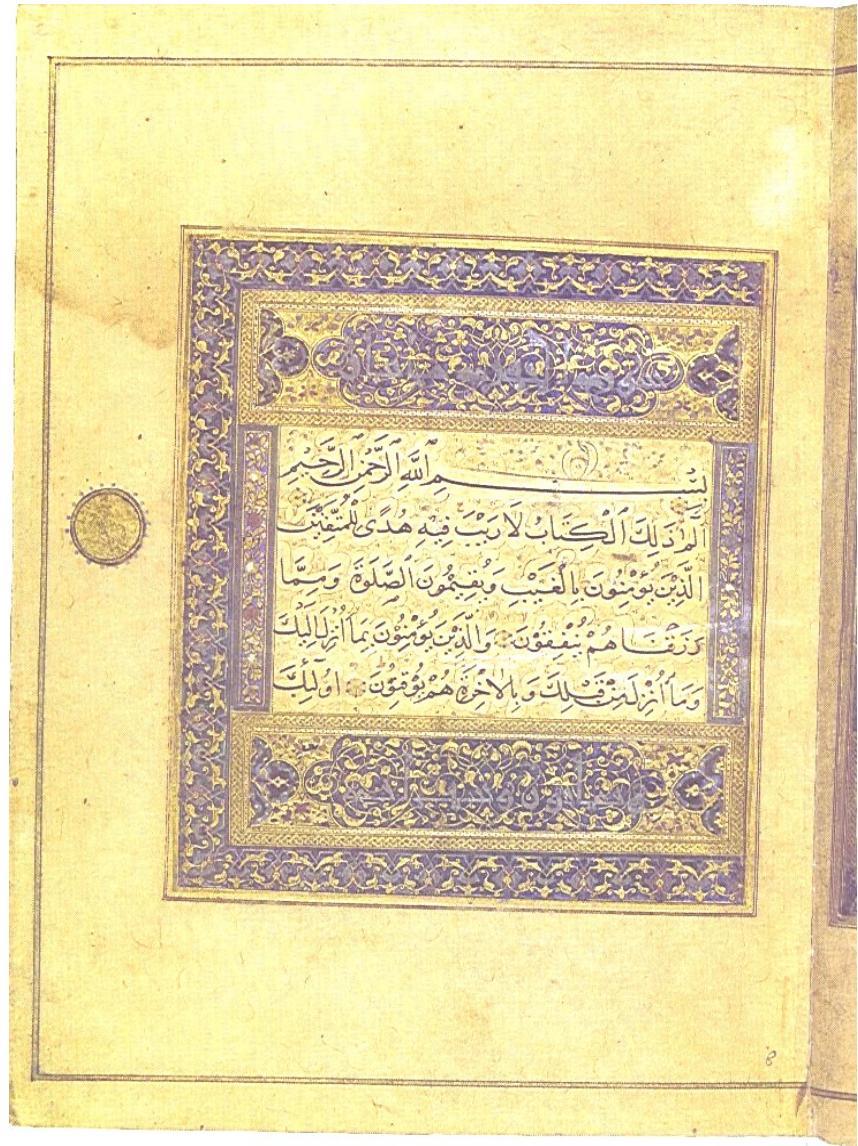 بِسْمِ ٱللَّهِ ٱلرَّحْمَٰنِ ٱلرَّحِيمِ
الٓمٓ ذَلِكَ ٱلْكِتَابُ لَا رَيْبَ فِيهِ هُدًى لِلْمُتَّقِينَ
الَّذِينَ يُؤْمِنُونَ بِالْغَيْبِ وَيُقِيمُونَ ٱلصَّلَوةَ وَمِمَّا
رَزَقْنَاهُمْ يُنْفِقُونَ وَالَّذِينَ يُؤْمِنُونَ بِمَا أُنْزِلَ إِلَيْكَ
وَمَا أُنْزِلَ مِنْ قَبْلِكَ وَبِالْآخِرَةِ هُمْ يُوقِنُونَ أُولَٰئِكَ